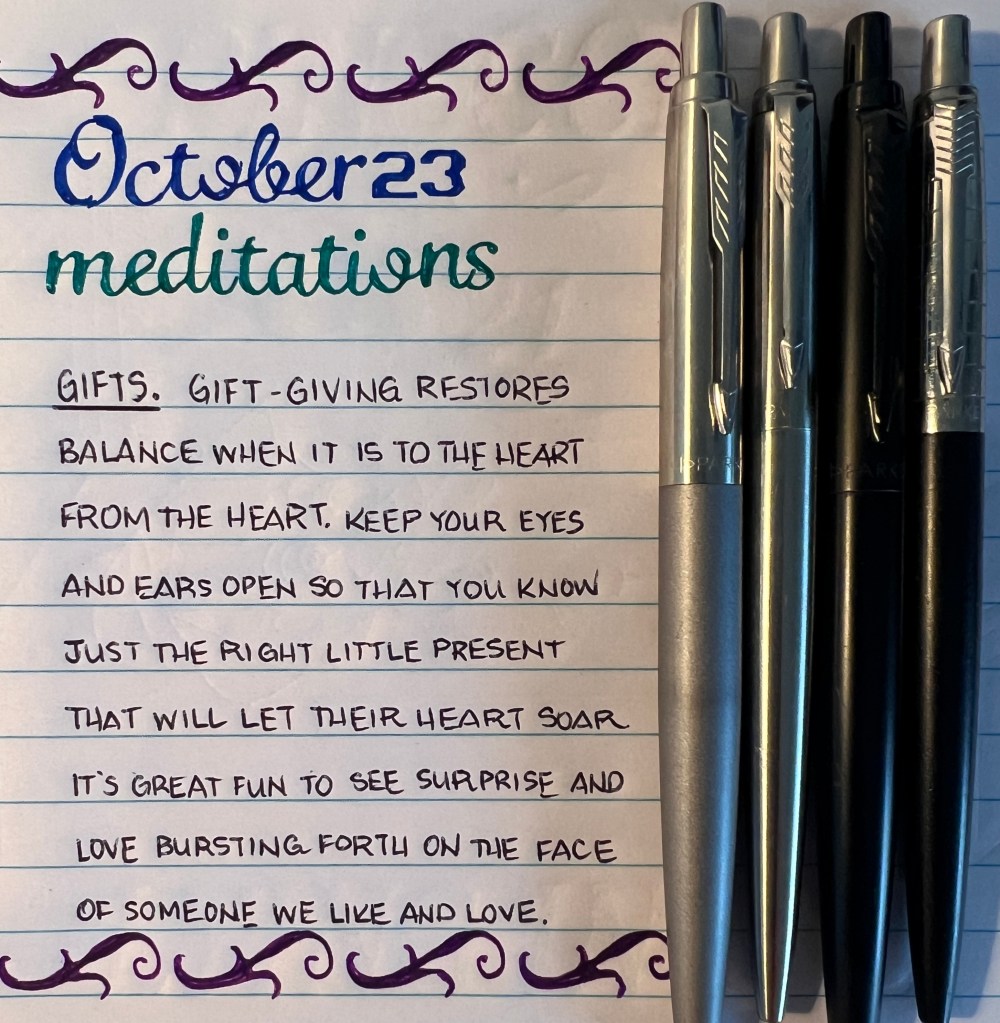 October 23
meditations
GIFTS. GIFT-GIVING RESTORES
BALANCE WHEN IT IS TO THE HEART
FROM THE HEART. KEEP YOUR EYES
AND EARS OPEN SO THAT YOU KNOW
JUST THE RIGHT LITTLE PRESENT
THAT WILL LET THEIR HEART SOAR
IT'S GREAT FUN TO SEE SURPRISE AND
LOVE BURSTING FORTH ON THE FACE
OF SOMEONE WE LIKE AND LOVE.